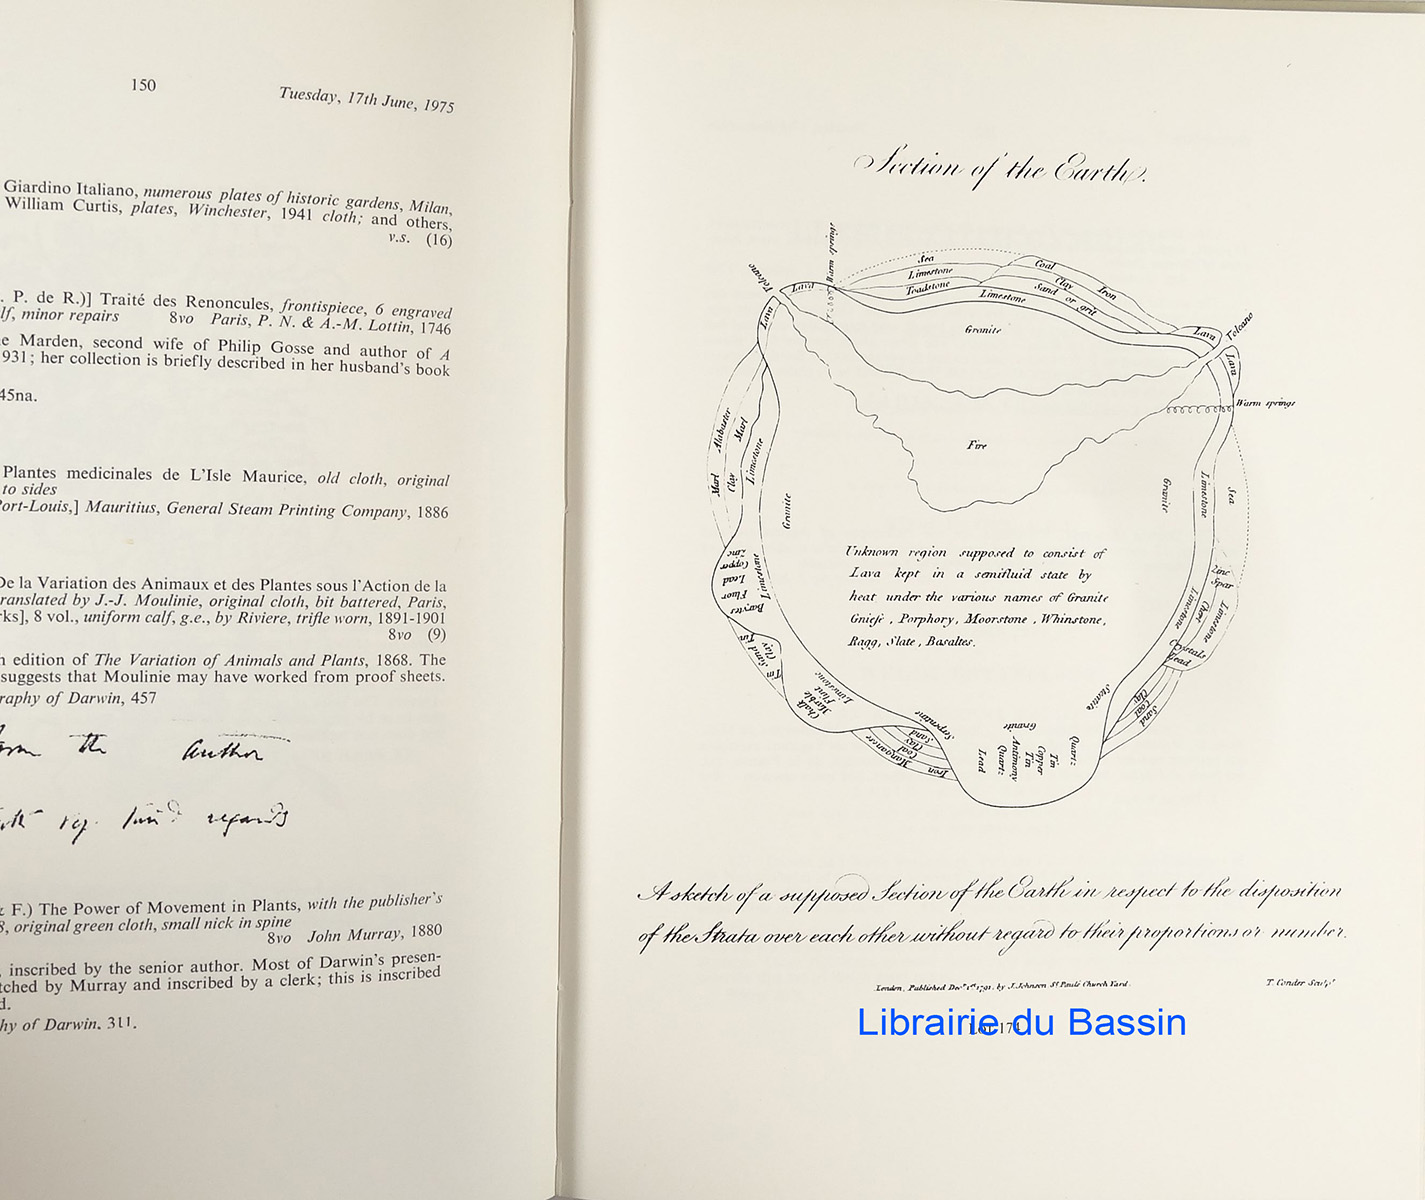 150
Tuesday, 17th June, 1975
Giardino Italiano, numerous plates of historic gardens, Milan,
William Curtis, plates, Winchester, 1941 cloth; and others,
v.s. (16)
. P. de R.)] Traité des Renoncules, frontispiece, 6 engraved
lf, minor repairs 8vo Paris, P. N. & A.-M. Lottin, 1746
e Marden, second wife of Philip Gosse and author of A
931; her collection is briefly described in her husband's book
45na.
Plantes medicinales de L'Isle Maurice, old cloth, original
to sides
Port-Louis,] Mauritius, General Steam Printing Company, 1886
De la Variation des Animaux et des Plantes sous l'Action de la
ranslated by J.-J. Moulinie, original cloth, bit battered, Paris,
rks], 8 vol., uniform calf, g.e., by Riviere, trifle worn, 1891-1901
8vo (9)
n edition of The Variation of Animals and Plants, 1868. The
suggests that Moulinie may have worked from proof sheets.
raphy of Darwin, 457
the author
regards
& F.) The Power of Movement in Plants, with the publisher's
8, original green cloth, small nick in spine
8vo John Murray, 1880
, inscribed by the senior author. Most of Darwin's presen-
tched by Murray and inscribed by a clerk; this is inscribed
d.
hy of Darwin. 311.
Section of the Earth.
Volcano
Warm springs
Lava
Lava
Sea
Limestone
Toadstone
Limestone
Coal
Clay
Iron
Sand or grit
Granite
Lava
Volcano
Lava
Warm springs
Fire
Alabaster
Marl
Marl
Clay
Limestone
Granite
Granite
Limestone
Sea
Unknown region supposed to consist of
Lava kept in a semifluid state by
heat under the various names of Granite
Gniess, Porphory, Moorstone, Whinstone,
Ragg, Slate, Basaltes.
Zinc
Copper
Lead
Fluor
Barytes
Limestone
Tin
Sand
Clay
Tin
Chalk
Marble
Flint
Limestone
Serpentine
Sand
Clay
Coal
Manganese
Iron
Granite
Lead
Quartz
Antimony
Tin
Copper
Tin
Quartz
Steatite
Zinc
Spar
Limestone
Chert
Limestone
Crystals
Lead
Clay
Coal
Sand
A sketch of a supposed Section of the Earth in respect to the disposition
of the Strata over each other without regard to their proportions or number.
London, Published Decr. 1st. 1791, by J. Johnson St. Pauls Church Yard.
T. Conder Sculpt.
Librairie du Bassin
Lot 174